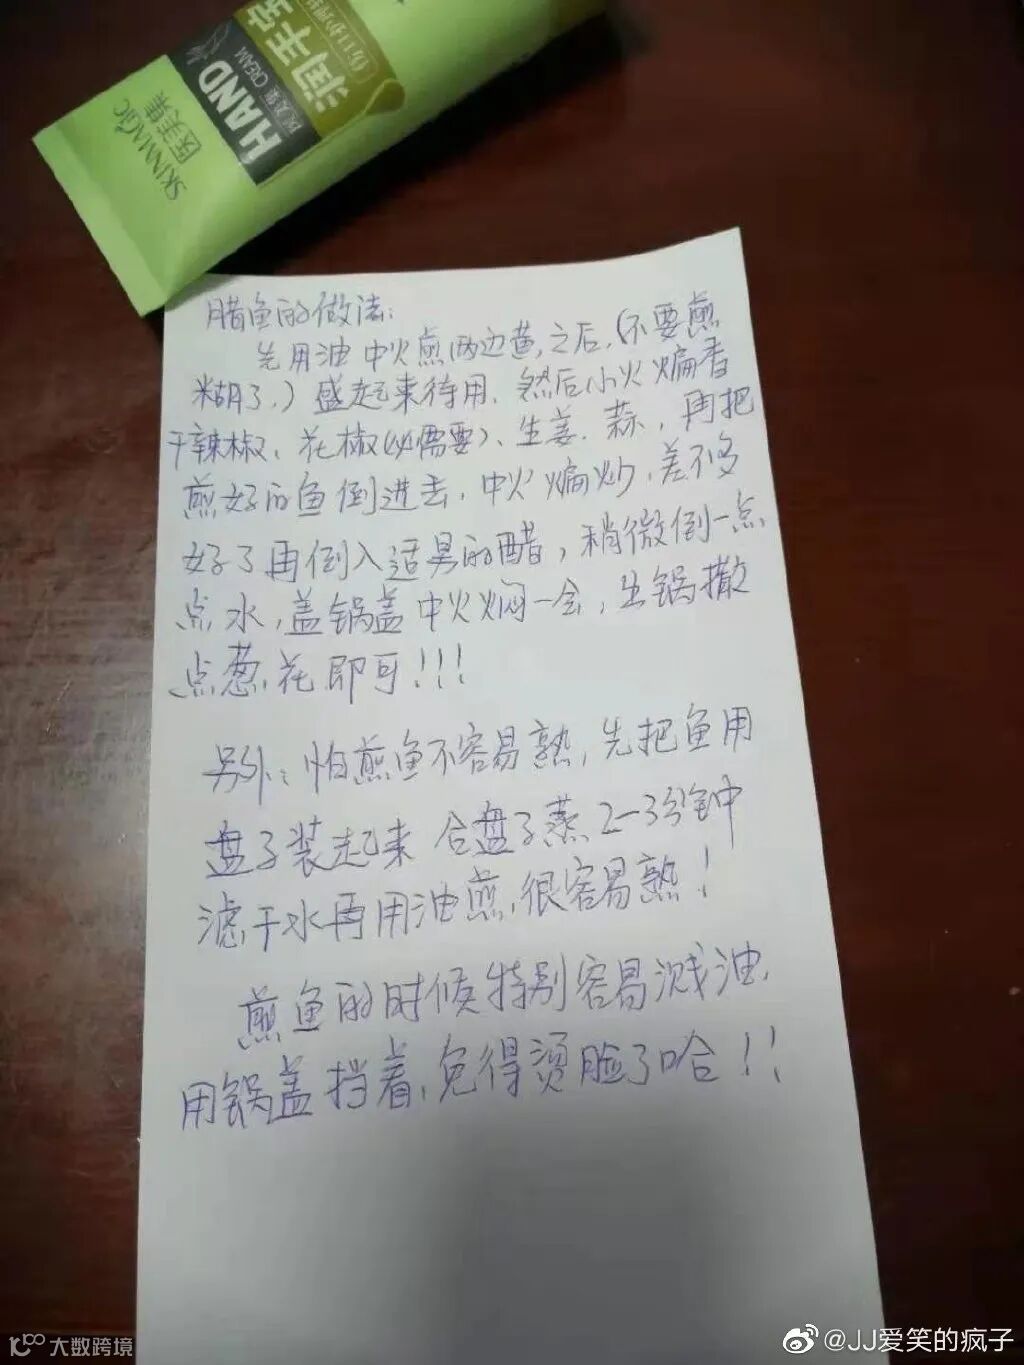 SKINMAGIC
医美集
HAND
CREAM
腊鱼的做法:
先用油中火煎两边黄,之后,(不要煎
糊了.)盛起来待用.然后小火煸香
干辣椒、花椒(必需要)、生姜.蒜,再把
煎好的鱼倒进去,中火煸炒,差不多
好了再倒入适男的醋,稍微倒一点
点水,盖锅盖中火焖一会,出锅撒
点葱花即可!!!
另外:怕煎鱼不容易熟,先把鱼用
盘子装起来 合盘子蒸2-3分钟
滤干水再用油煎,很容易熟!
煎鱼的时候特别容易溅油,
用锅盖挡着,免得烫脸了哈!!
大数跨境
@JJ爱笑的疯子